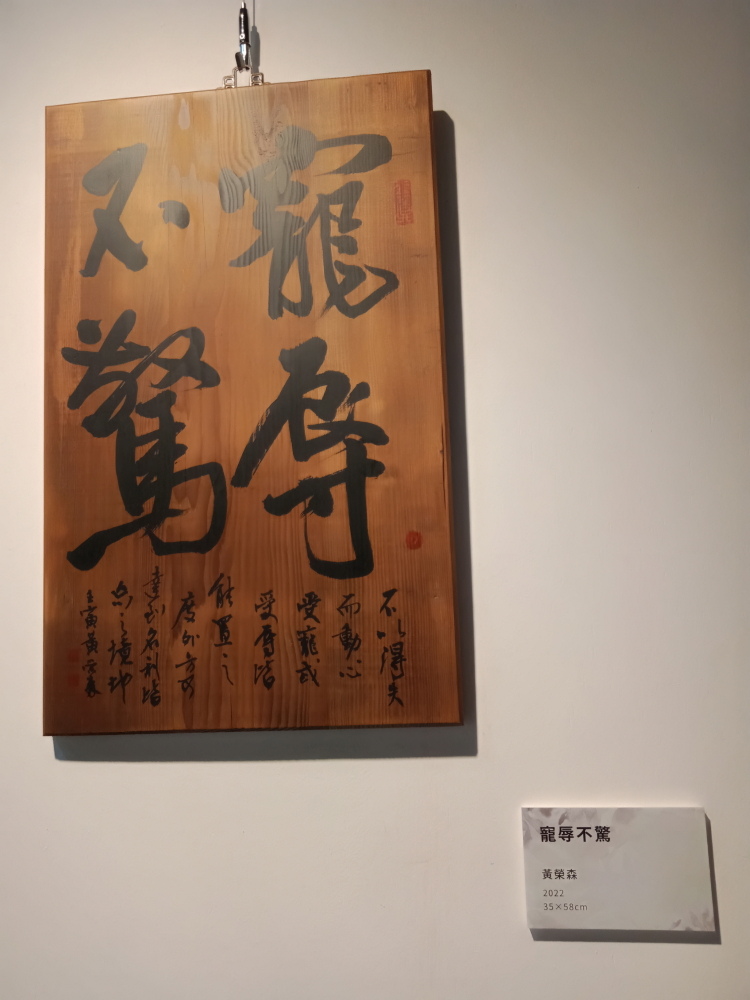 寵辱
不驚
不以得失
而動心
受寵或
受辱皆
能置之
度外方可
達到名利皆
忘之境地
壬寅黃榮森
寵辱不驚
黃榮森
2022
35×58cm